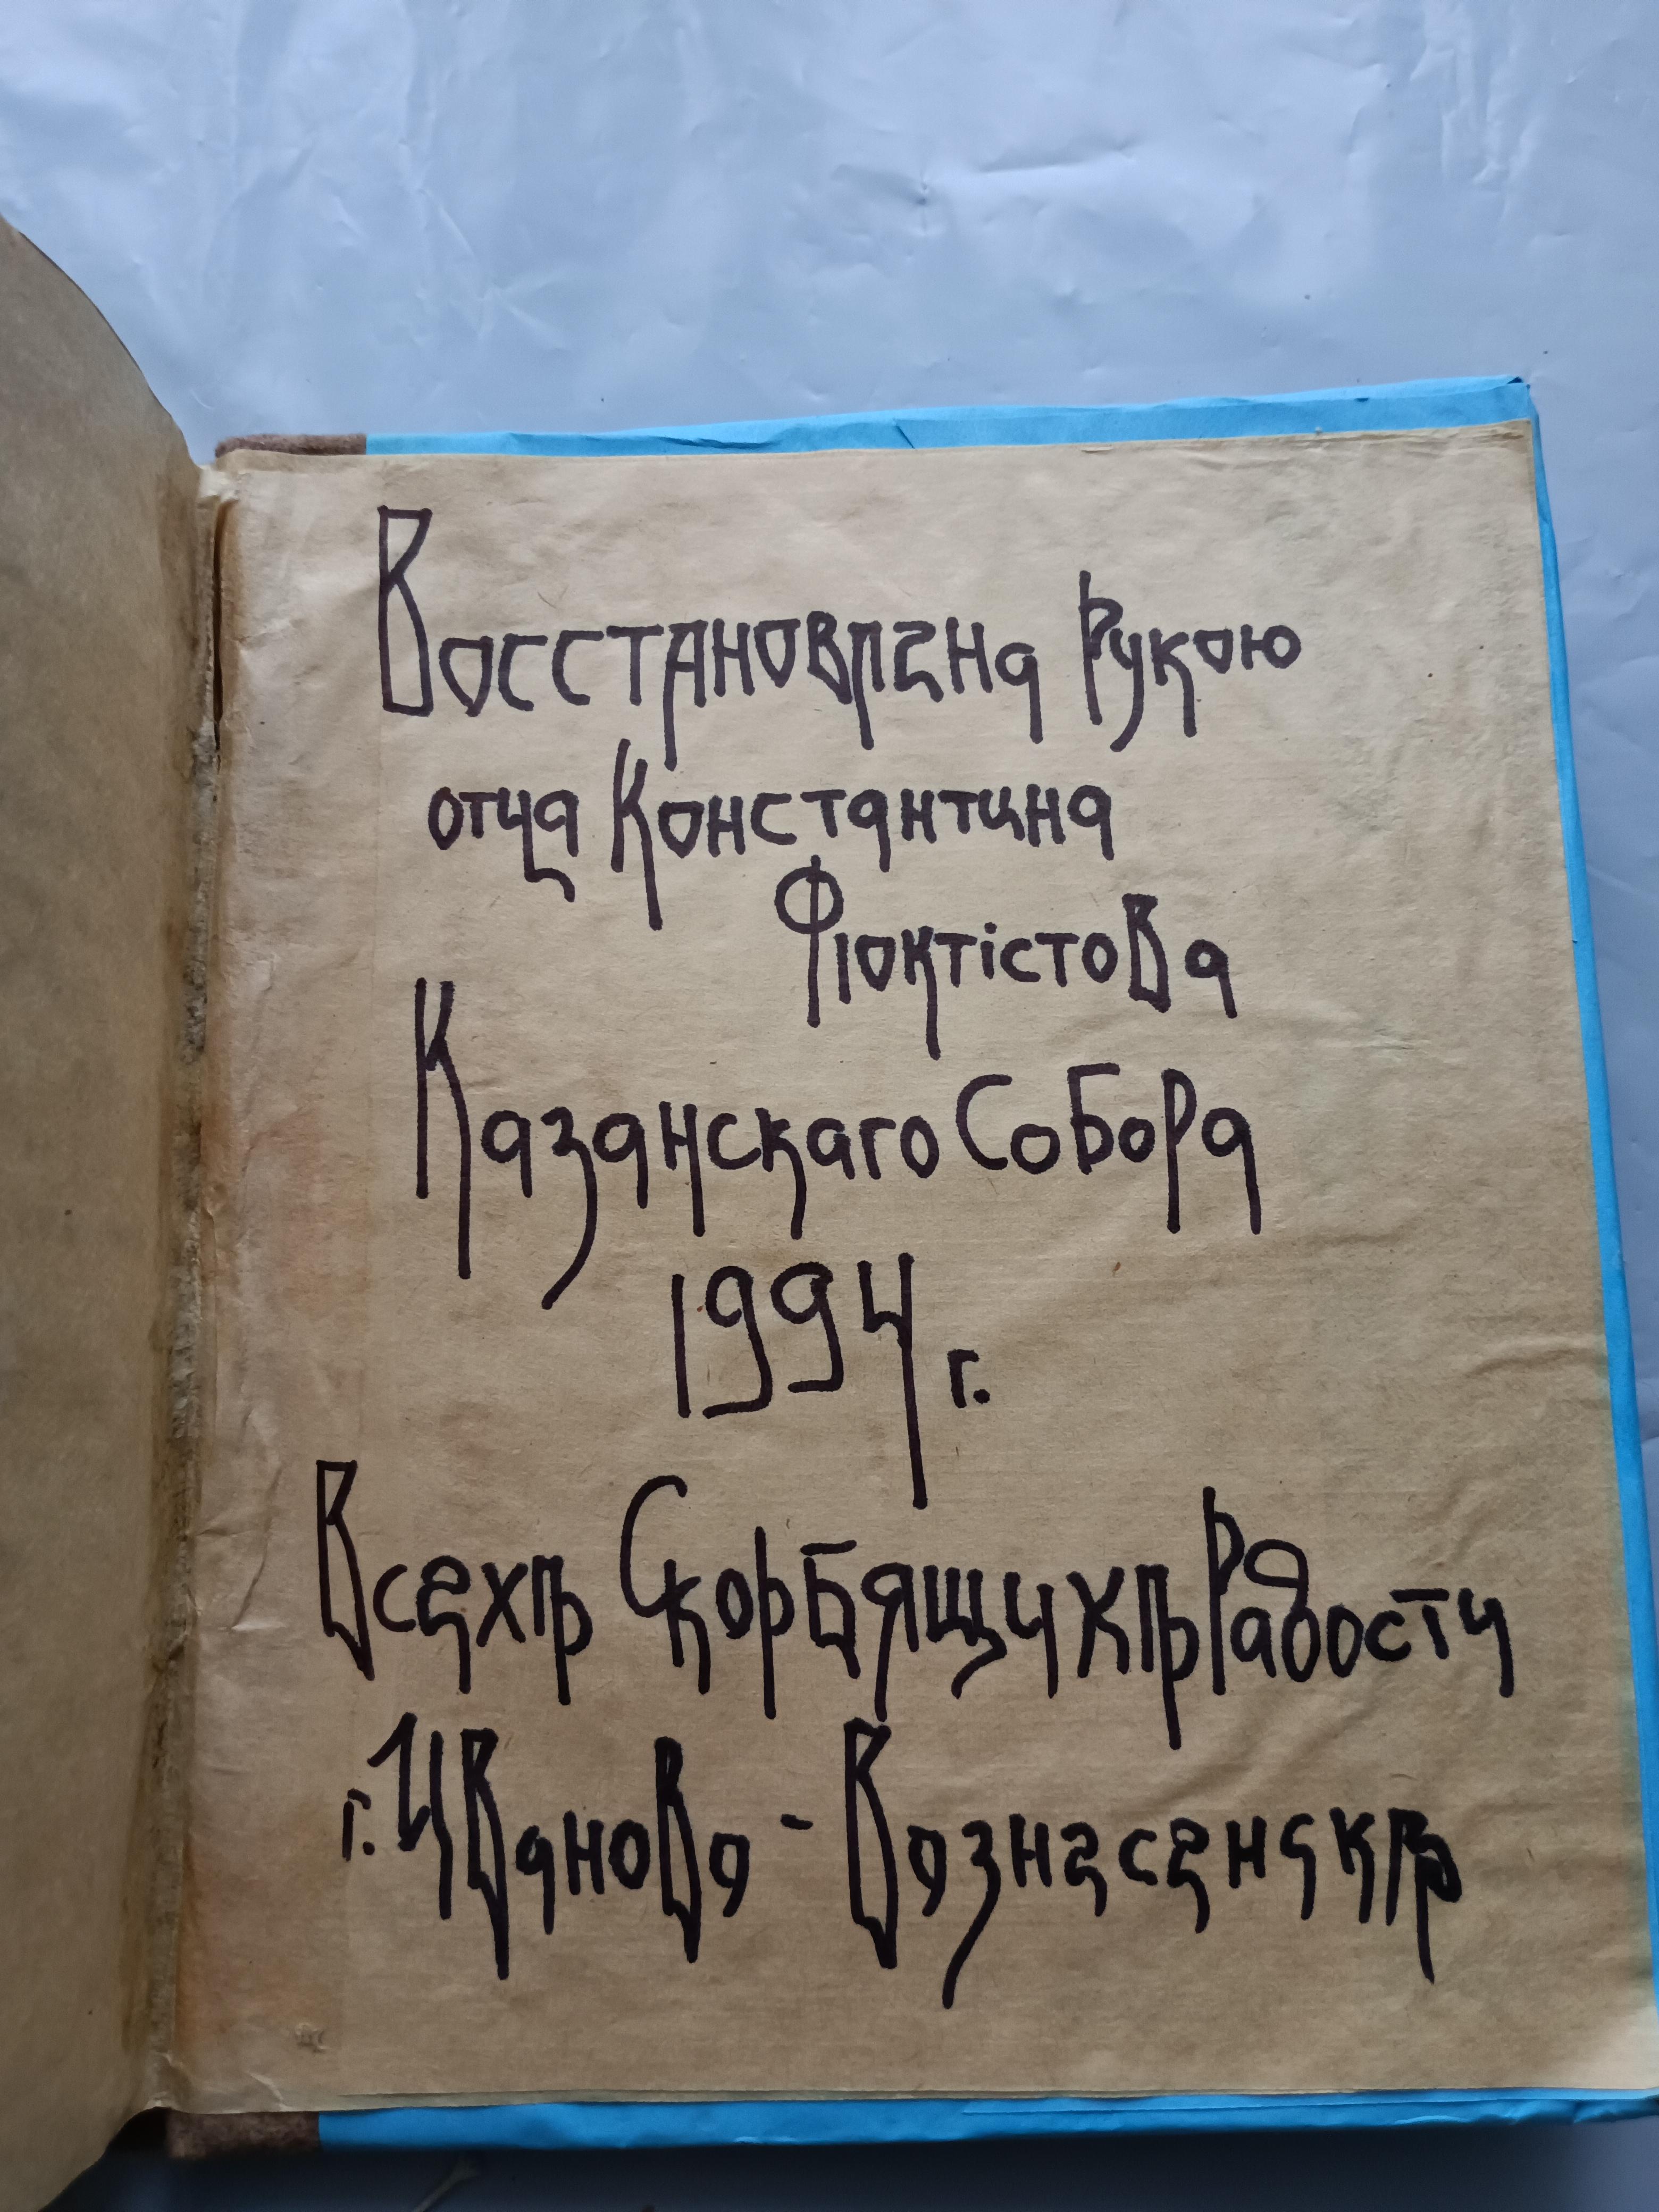 Восстановлена Рукою
отца Константина
Фіоктістова
Казанскаго Собора
1994 г.
Всехъ Скорбящихъ Радости
г. Иваново - Вознесенскъ